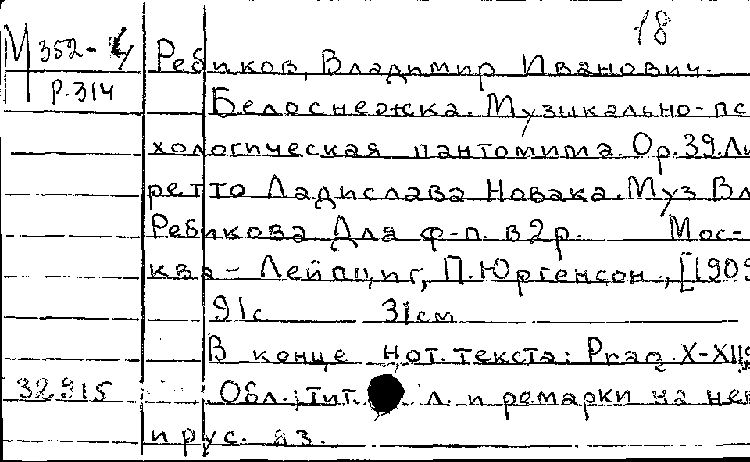 18
М 352-4
Р.314
Ребиков, Владимир Иванович.
Белоснежка. Музыкально-пс
хологическая пантомима. Ор.39. Ли
ретто Ладислава Новака. Муз Вл
Ребикова Для ф-п. в 2 р. Мос-
ква - Лейпциг, П. Юргенсон, [1909
91с 31см
В конце нот. текста: Prag. X-XII
32915 Обл., тит. л. и ремарки на нем
и рус. яз.